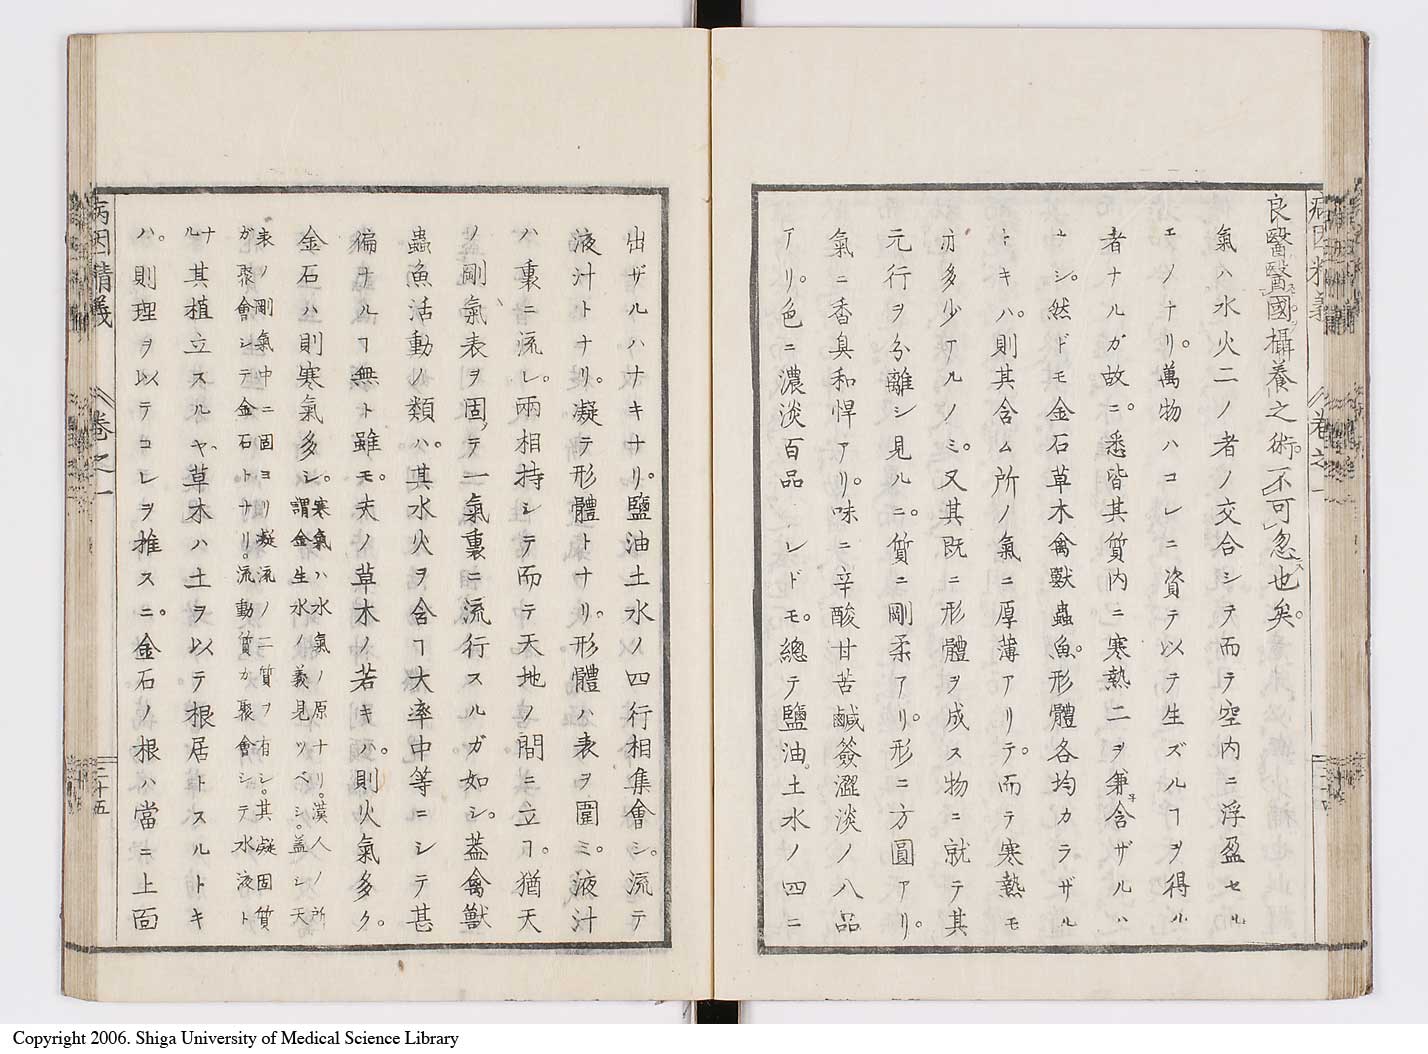 良醫醫國攝養之術。不可忽也矣。
氣ハ水火二ノ者ノ交合シテ而ラ空内ニ浮盈セル
モノナリ。萬物ハコレニ資テ以テ生ズルヿヲ得ル
者ナルガ故ニ。悉皆其質内ニ寒熱二ヲ兼含ザルハ
ナシ。然ドモ金石草木禽獸蟲魚。形體各均カラザル
トキハ。則其含ム所ノ氣ニ厚薄アリテ。而ラ寒熱モ
亦多少アルノミ。又其既ニ形體ヲ成ス物ニ就テ其
元行ヲ分離シ見ルニ。質ニ剛柔アリ。形ニ方圓アリ。
氣ニ香臭和悍アリ。味ニ辛酸甘苦鹹薟澀淡ノ八品
アリ。色ニ濃淡百品 レドモ。總テ鹽油。土水ノ四ニ
病因精義 卷之一
出ザルハナキナリ。鹽油土水ノ四行相集會シ。流テ
液汁トナリ。凝テ形體トナリ。形體ハ表ヲ圍ミ。液汁
ハ裏ニ流レ。兩相持シテ而テ天地ノ間ニ立ヿ。猶天
ノ剛氣表ヲ固メテ一氣裏ニ流行スルガ如シ。蓋禽獸
蟲魚活動ノ類ハ。其水火ヲ含ヿ大率中等ニシテ甚
偏ナルヿ無ト雖モ。夫ノ草木ノ若キハ。則火氣多ク。
金石ハ則寒氣多シ。寒氣ハ水氣ノ原ナリ。漢人ノ所
謂金生水ノ義見ツベシ。蓋シ天
表ノ剛氣中ニ固ヨリ凝流ノ二質ヲ有シ。其凝固質
ガ聚會シテ金石トナリ。流動質カ聚會シテ水液ト
ナル 其植立スルヤ。草木ハ土ヲ以テ根居トスルトキ
ハ。則理ヲ以テコレヲ推スニ。金石ノ根ハ當ニ上面
病因精義 卷之一 三十五
Copyright 2006. Shiga University of Medical Science Library